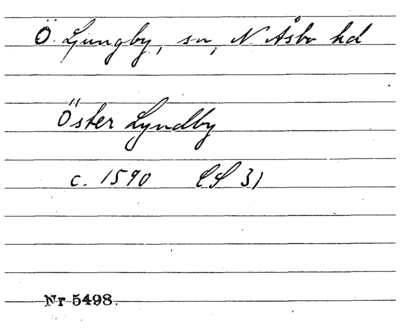 Ö. Ljungby, sn, N Åsbo hd
Öster Lyndby
c. 1590 LS 31
Nr 5498.